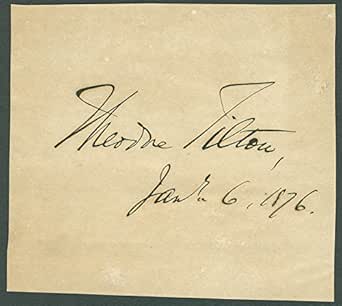 Theodore Tilton,
Jany. 6, 1876.